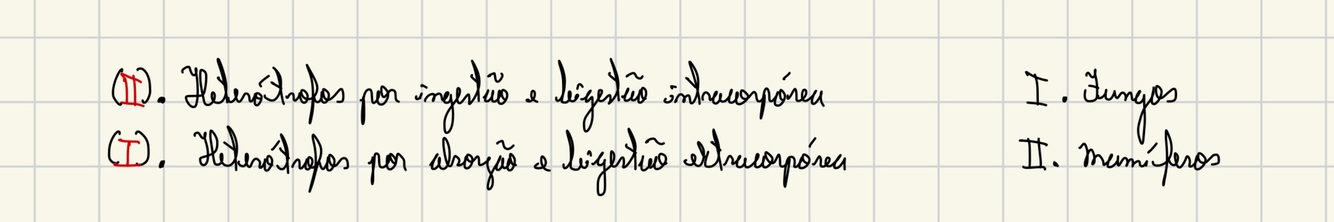 (II). Heterótrofos por ingestão e digestão intracorpórea I. Fungos
(I). Heterótrofos por absorção e digestão extracorpórea II. mamíferos